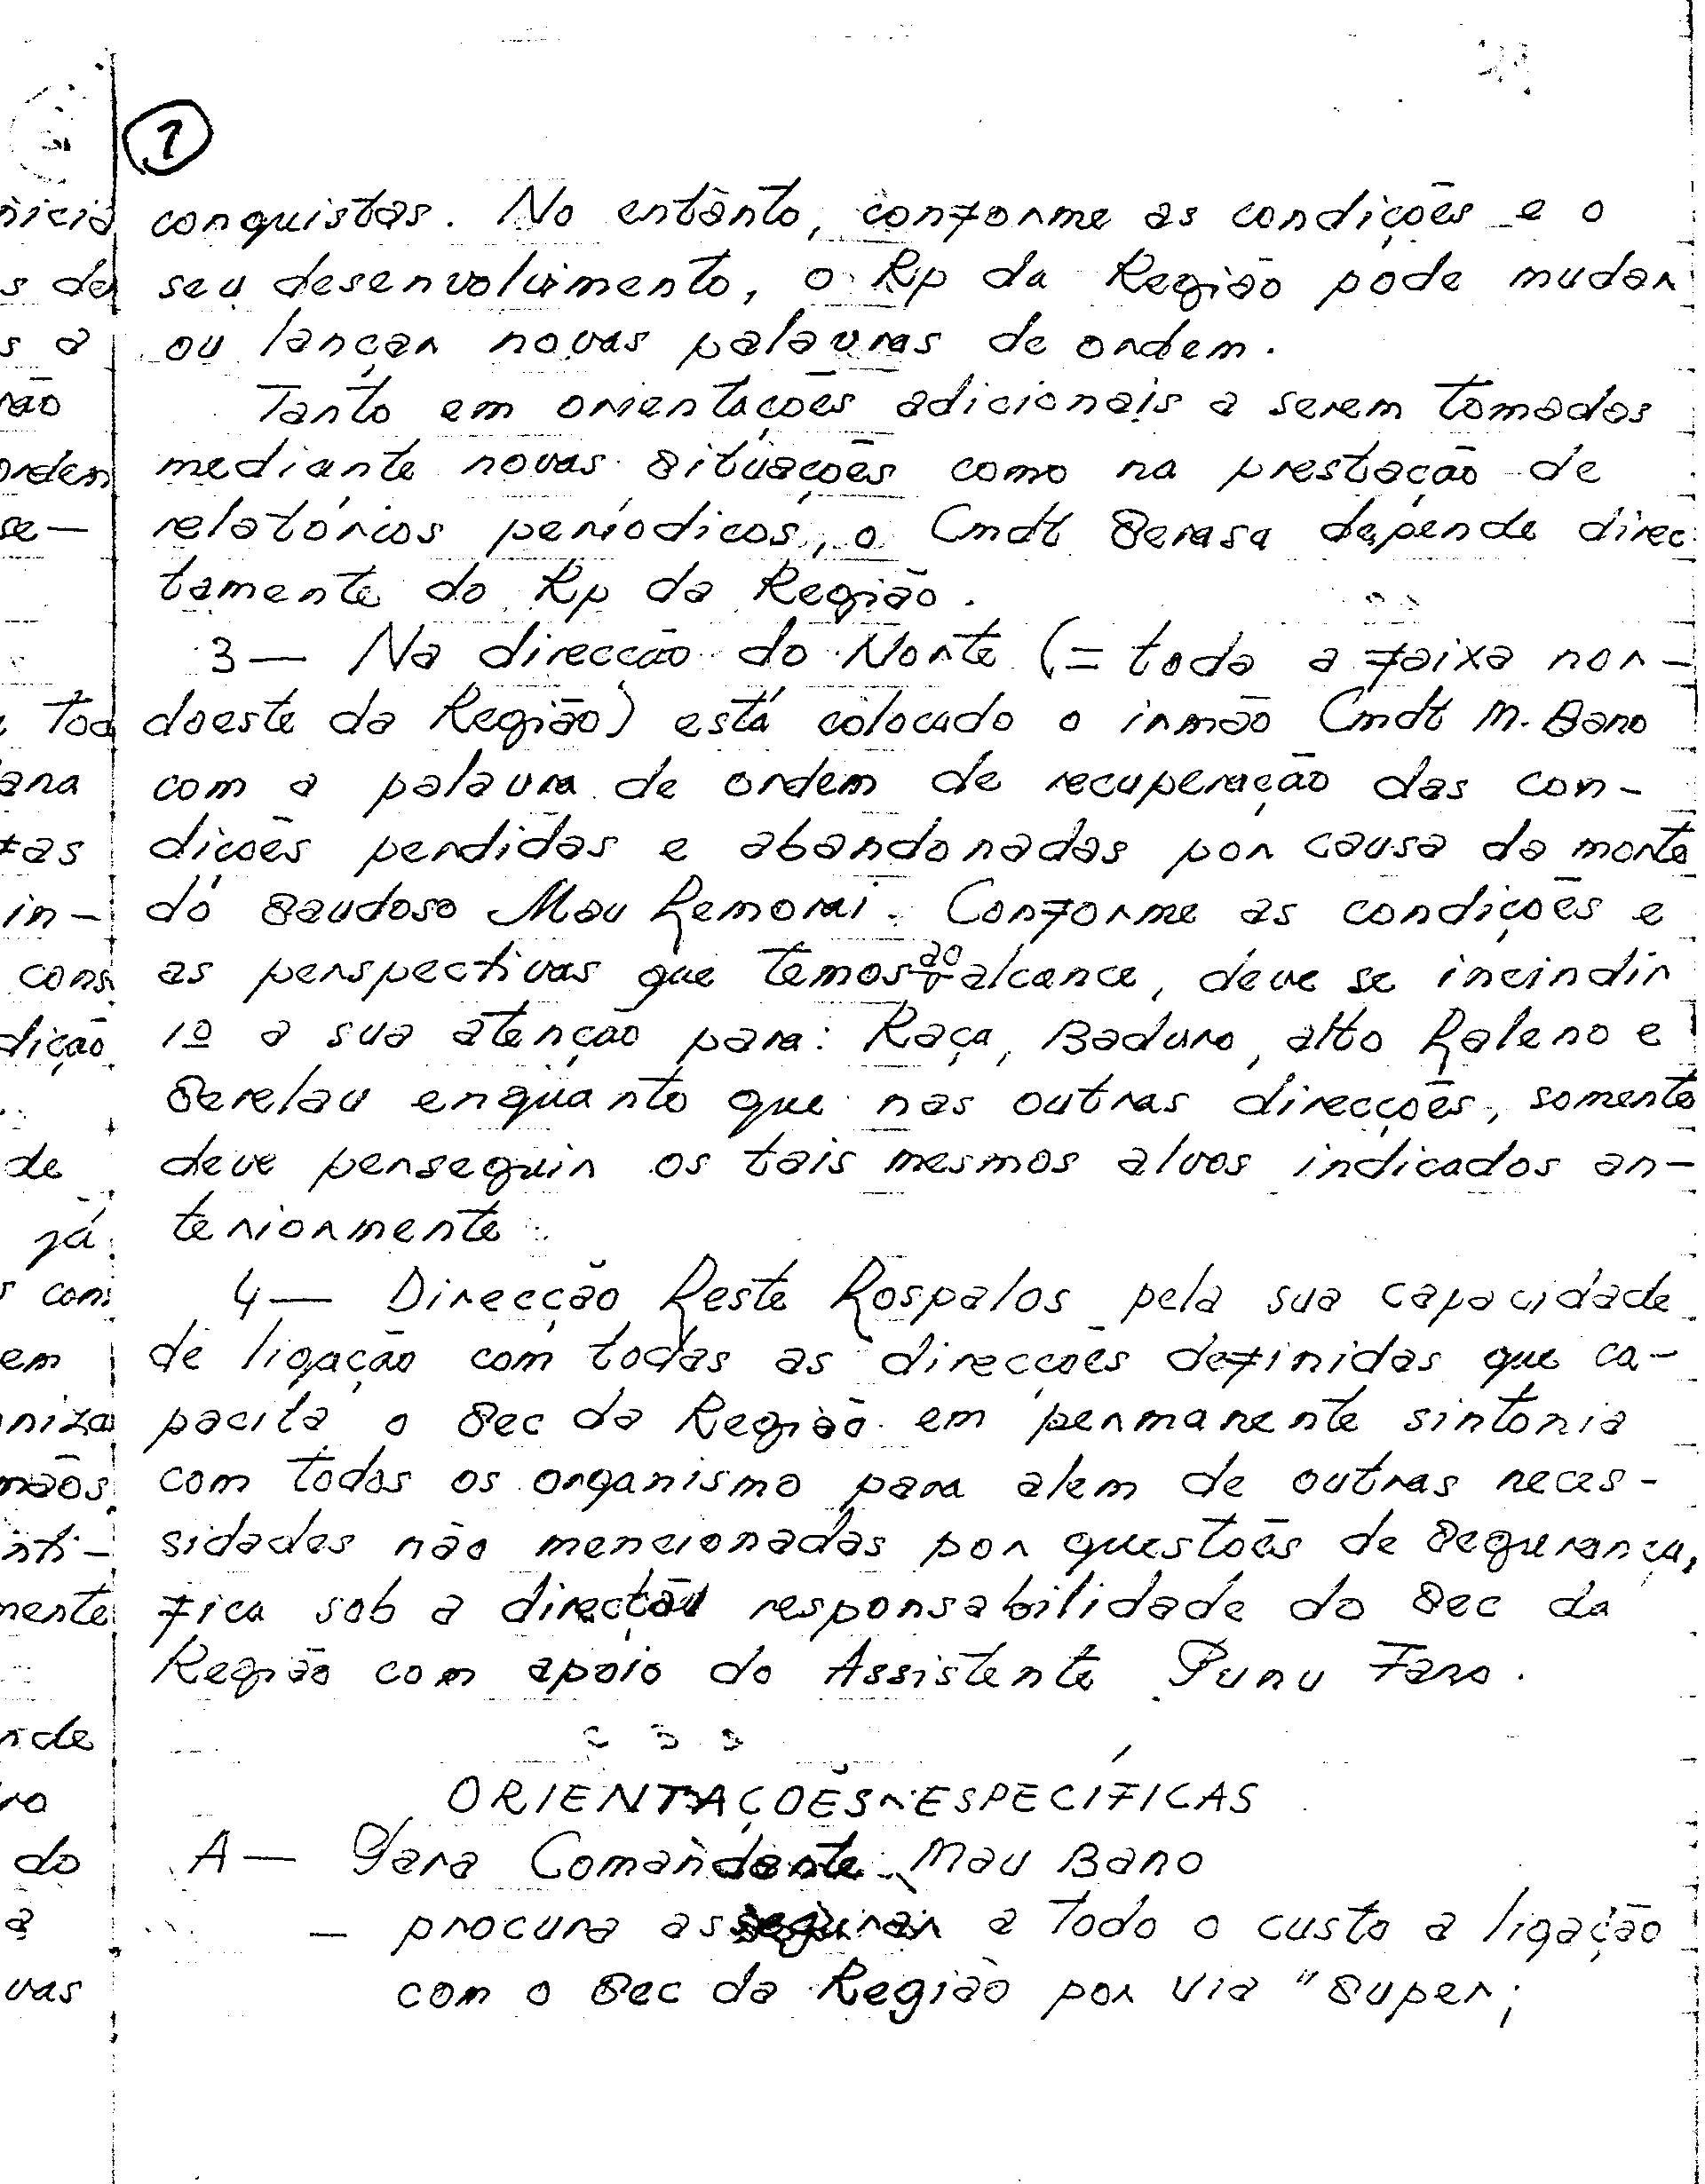 1
conquistas. No entanto, conforme as condições e o
seu desenvolvimento, o Rp da Região pode mudar
ou lançar novas palavras de ordem.
Tanto em orientações adicionais a serem tomadas
mediante novas situações como na prestação de
relatórios periódicos, o Cmdt Serasa depende direc
tamente do Rp da Região.
3— Na direcção do Norte (= toda a faixa nor-
doeste da Região) está colocado o irmão Cmdt M. Bano
com a palavra de ordem de recuperação das con-
dições perdidas e abandonadas por causa da morte
do saudoso Mau Lemorai. Conforme as condições e
as perspectivas que temos ao alcance, deve se incindir
1º a sua atenção para: Raça, Baduro, alto Laleno e
Serelau enquanto que nas outras direcções, somente
deve perseguir os tais mesmos alvos indicados an-
teriormente.
4— Direcção Leste Lospalos pela sua capacidade
de ligação com todas as direcções definidas que ca-
pacita o Sec da Região em permanente sintonia
com todos os organismo para alem de outras neces-
sidades não mencionadas por questões de Segurança,
fica sob a responsabilidade do Sec da
Região com apoio do Assistente Punu Faro.
ORIENTAÇÕES ESPECÍFICAS
A— Para Comandante Mau Bano
— procura assegurar a todo o custo a ligação
com o Sec da Região por via "Super;
nicia
s de
s a
rão
ordem
se—
Tod
ana
fas
in-
cons
dição
de
já
s con
em
niza
mãos
nti-
mente
nde
ro
do
a
vas